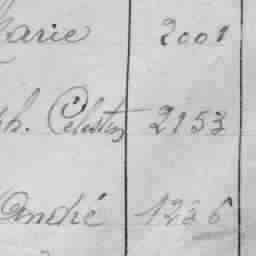 Marie 2001
ph. Célestin 2153
André 1236